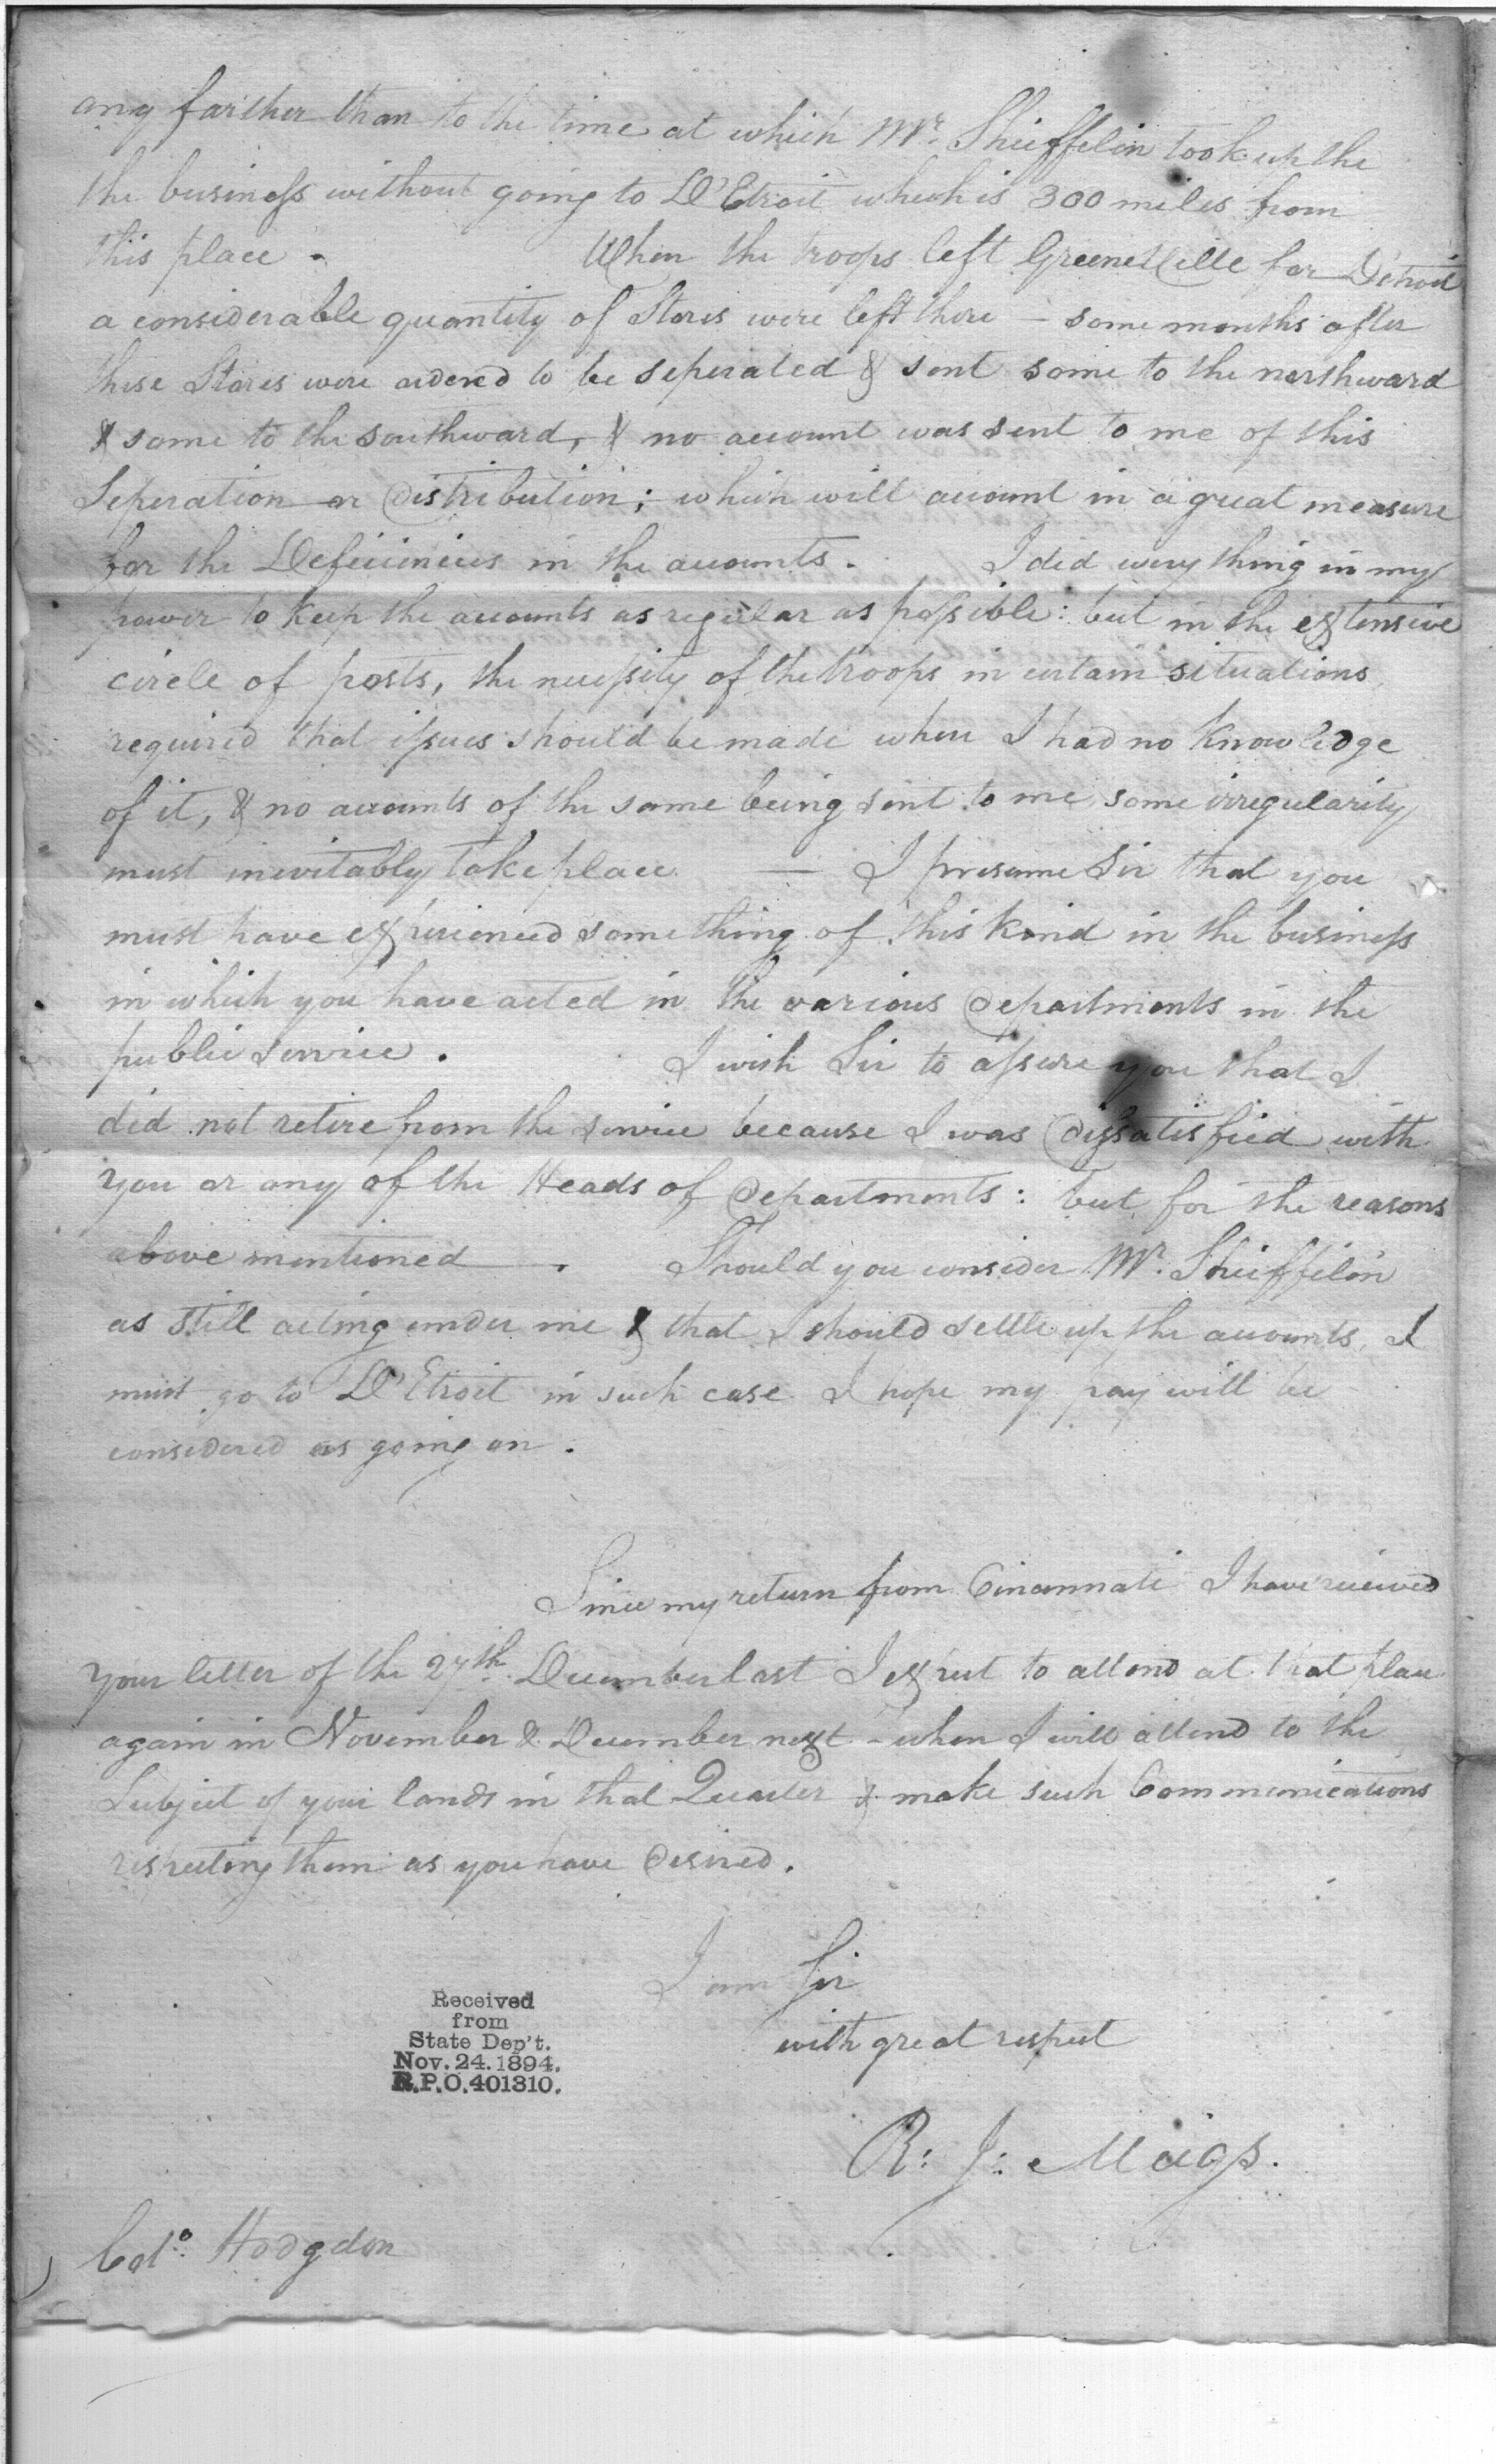 any farther than to the time at which Mr. Shieffelin took up the
the business without going to D'Etroit which is 300 miles from
this place. When the troops left GreeneVille for Detroit
a considerable quantity of Stores were left there – some months after
these Stores were ordered to be seperated & sent some to the northward
& some to the southward, & no account was sent to me of this
Seperation or distribution; which will account in a great measure
for the Deficiencies in the accounts. I did every thing in my
power to keep the accounts as regular as possible: but in the extensive
circle of posts, the necessity of the troops in certain situations
required that issues should be made when I had no Knowledge
of it, & no accounts of the same being sent to me some irregularity
must inevitably take place — I presume Sir that you
must have experienced something of this kind in the business
in which you have acted in the various departments in the
public service. I wish Sir to assure you that I
did not retire from the service because I was dissatisfied with
you or any of the Heads of departments: but for the reasons
above mentioned. Should you consider Mr. Shieffelin
as still acting under me & that I should settle up the accounts, I
must go to D'Etroit in such case I hope my pay will be
considered as going on.
Since my return from Cincinnati I have received
your letter of the 27th. December last I expect to attend at that place
again in November & December next – when I will attend to the
Subject of your lands in that Quarter & make such Communications
respecting them as you have desired.
I am Sir
with great respect
R: J: Meigs.
Received
from
State Dep't.
Nov. 24. 1894.
R.P.O. 401310.
Colo. Hodgdon